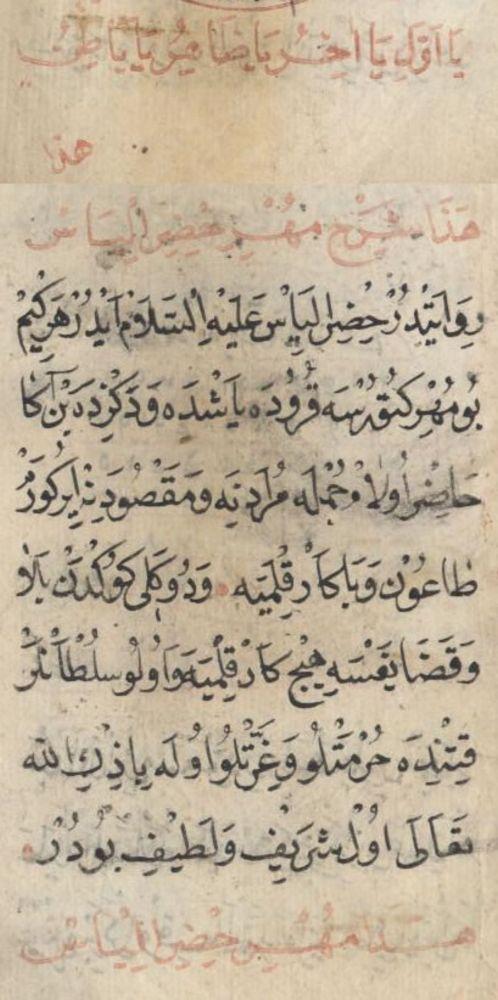 يا اول يا اخر يا ظاهر يا باطن
هذا
هذا شرح مهر خضر الياس
رِوَايَتْدُرْ حِضِرْ اِلْيَاسْ عَلَيْهِ السَّلَامْ اَيْدُرْ هَرْ كِيمْ
بُو مُهْرِ كُتُورْسَه قُرُودَه يَاشْدَه وَدَكِزْدَه بَنْ آكَا
حَاضِرْ اُولَامْ وَجُمْلَه مُرَادِنَه وَمَقْصُودِنَه اِيرْكُورَمْ
طَاعُونْ وَبَا كَارْ قِلْمَيَه وَدُوكَلِي كَوْكْدَنْ بَلَا
وَقَضَا نَفْسَه هِيچْ كَارْ قِلْمَيَه وَاُولُو سُلْطَانْلَرْ
قَتِنْدَه حُرْمَتْلُو وَعِزَّتْلُو اُولَه بِاِذْنِ الله
تَعَالَى اُولْ شَرِيفْ وَلَطِيفْ بُودُرْ
هذا مهر خضر الياس